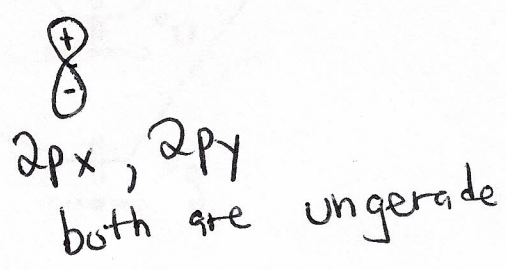 +
-
2px, 2py
both are ungerade